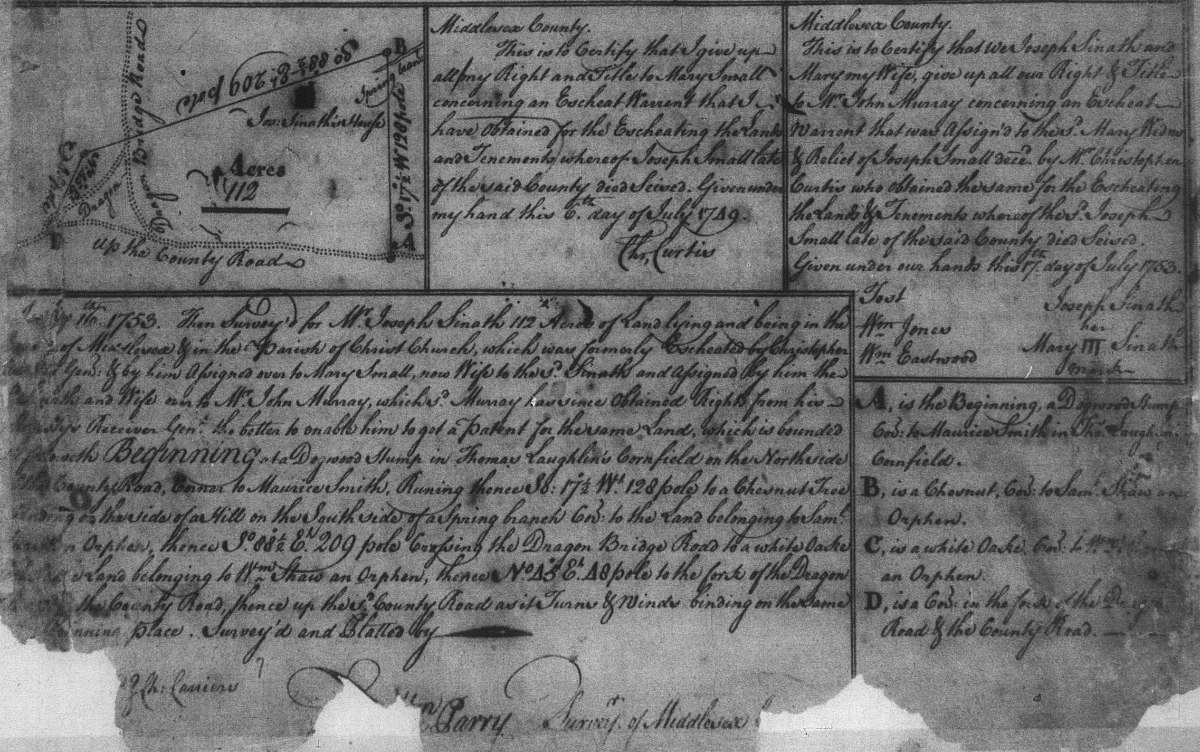 So 88½ Et 209 pole
Dragon Bridge Road
B
Spring bran
Jos: Sinath's House
So 17½ W 128 pole
Acres
112
Dragon
D
A
up the County Road
Middlesex County.
This is to Certify that I give up
all my Right and Title to Mary Small
concerning an Escheat Warrent that I
have Obtained for the Escheating the Lands
and Tenements whereof Joseph Small late
of the said County died Seised. Given under
my hand this 6th. day of July 1749.
Chr. Curtis
Middlesex County.
This is to Certify that we Joseph Sinath and
Mary my Wife, give up all our Right & Title
to Mr. John Murray concerning an Escheat
Warrent that was Assign'd to the sd. Mary Widow
& Relict of Joseph Small decd. by Mr. Christopher
Curtis who obtained the same for the Escheating
the Lands & Tenements whereof the sd. Joseph
Small late of the said County died Seised.
Given under our hands this 17th. day of July 1753.
Test
Wm Jones
Wm Eastwood
Joseph Sinath
her
Mary III Sinath
mark
11th. 1753. Then Survey'd for Mr. Joseph Sinath 112 Acres of Land lying and being in the
of Middlesex & in the Parish of Christ Church, which was formerly Escheated by Christopher
Gent: & by him Assigned over to Mary Small, now Wife to the sd. Sinath and Assigned by him the
Sinath and Wife over to Mr. John Murray, which sd. Murray has since Obtained Rights from his
Receiver Genl. the better to enable him to get a patent for the same Land, which is bounded
Beginning at a Dogwood Stump in Thomas Laughlin's Cornfield on the North side
County Road, Corner to Maurice Smith, Runing thence So: 17½ Wt 128 pole to a Chesnut Tree
on the side of a Hill on the South side of a Spring branch Cor: to the Land belonging to Saml.
Orphen, thence So. 88½ Et. 209 pole Crossing the Dragon Bridge Road to a white Oake
Land belonging to Wm Shaw an Orphen, thence No 45 Et. 48 pole to the fork of the Dragon
the County Road, thence up the sd. County Road as it Turns & Winds binding on the same
place. Survey'd and Platted by
Ch: Carriers
Parry Survr. of Middlesex
A, is the Beginning, a Dogwood Stump
Cor: to Maurice Smith in Tho: Laughlin
Cornfield.
B, is a Chesnut, Cor: to Saml. Shaw an
Orphen.
C, is a white Oake, Cor: to Wm.
an Orphen.
D, is a Cor: in the fork of the Dragon
Road & the County Road.